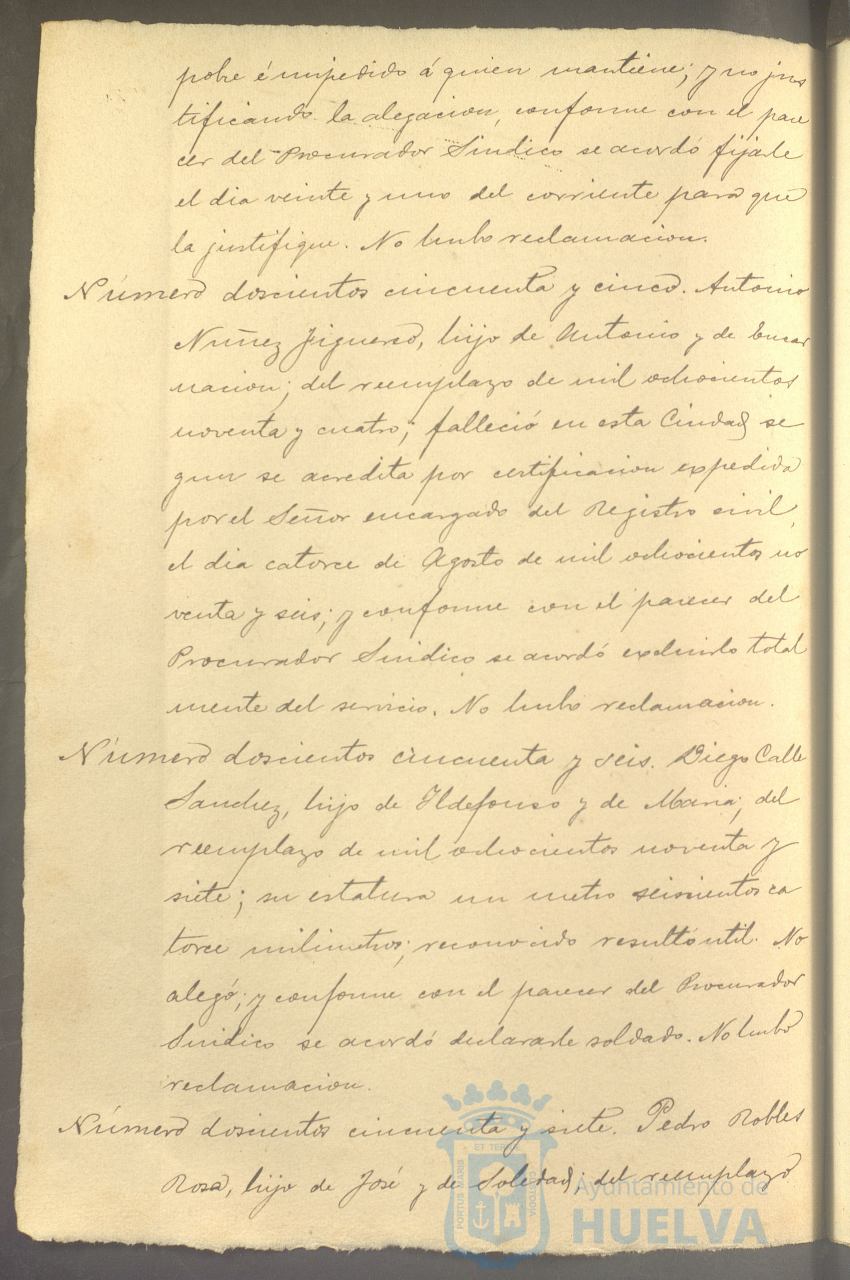 pobre é impedido á quien mantiene; y no jus
tificando la alegacion, conforme con el pare
cer del Procurador Sindico se acordó fijarle
el dia veinte y uno del corriente para que
la justifique. No hubo reclamacion.
Número doscientos cincuenta y cinco. Antonio
Nuñez Figueroa, hijo de Antonio y de Encar
nacion; del reemplazo de mil ochocientos
noventa y cuatro; falleció en esta Ciudad se
gun se acredita por certificacion expedida
por el Señor encargado del Registro civil
el dia catorce de Agosto de mil ochocientos no
venta y seis; y conforme con el parecer del
Procurador Sindico se acordó excluirlo total
mente del servicio. No hubo reclamacion.
Número doscientos cincuenta y seis. Diego Calle
Sanchez, hijo de Ildefonso y de Maria; del
reemplazo de mil ochocientos noventa y
siete; su estatura un metro seiscientos ca
torce milimetros; reconocido resultó util. No
alegó; y conforme con el parecer del Procurador
Sindico se acordó declararle soldado. No hubo
reclamacion.
Número doscientos cincuenta y siete. Pedro Robles
Rosa, hijo de José y de Soledad; del reemplazo
PORTUS MARIS ET TERRAE CUSTODIA
Ayuntamiento de
HUELVA